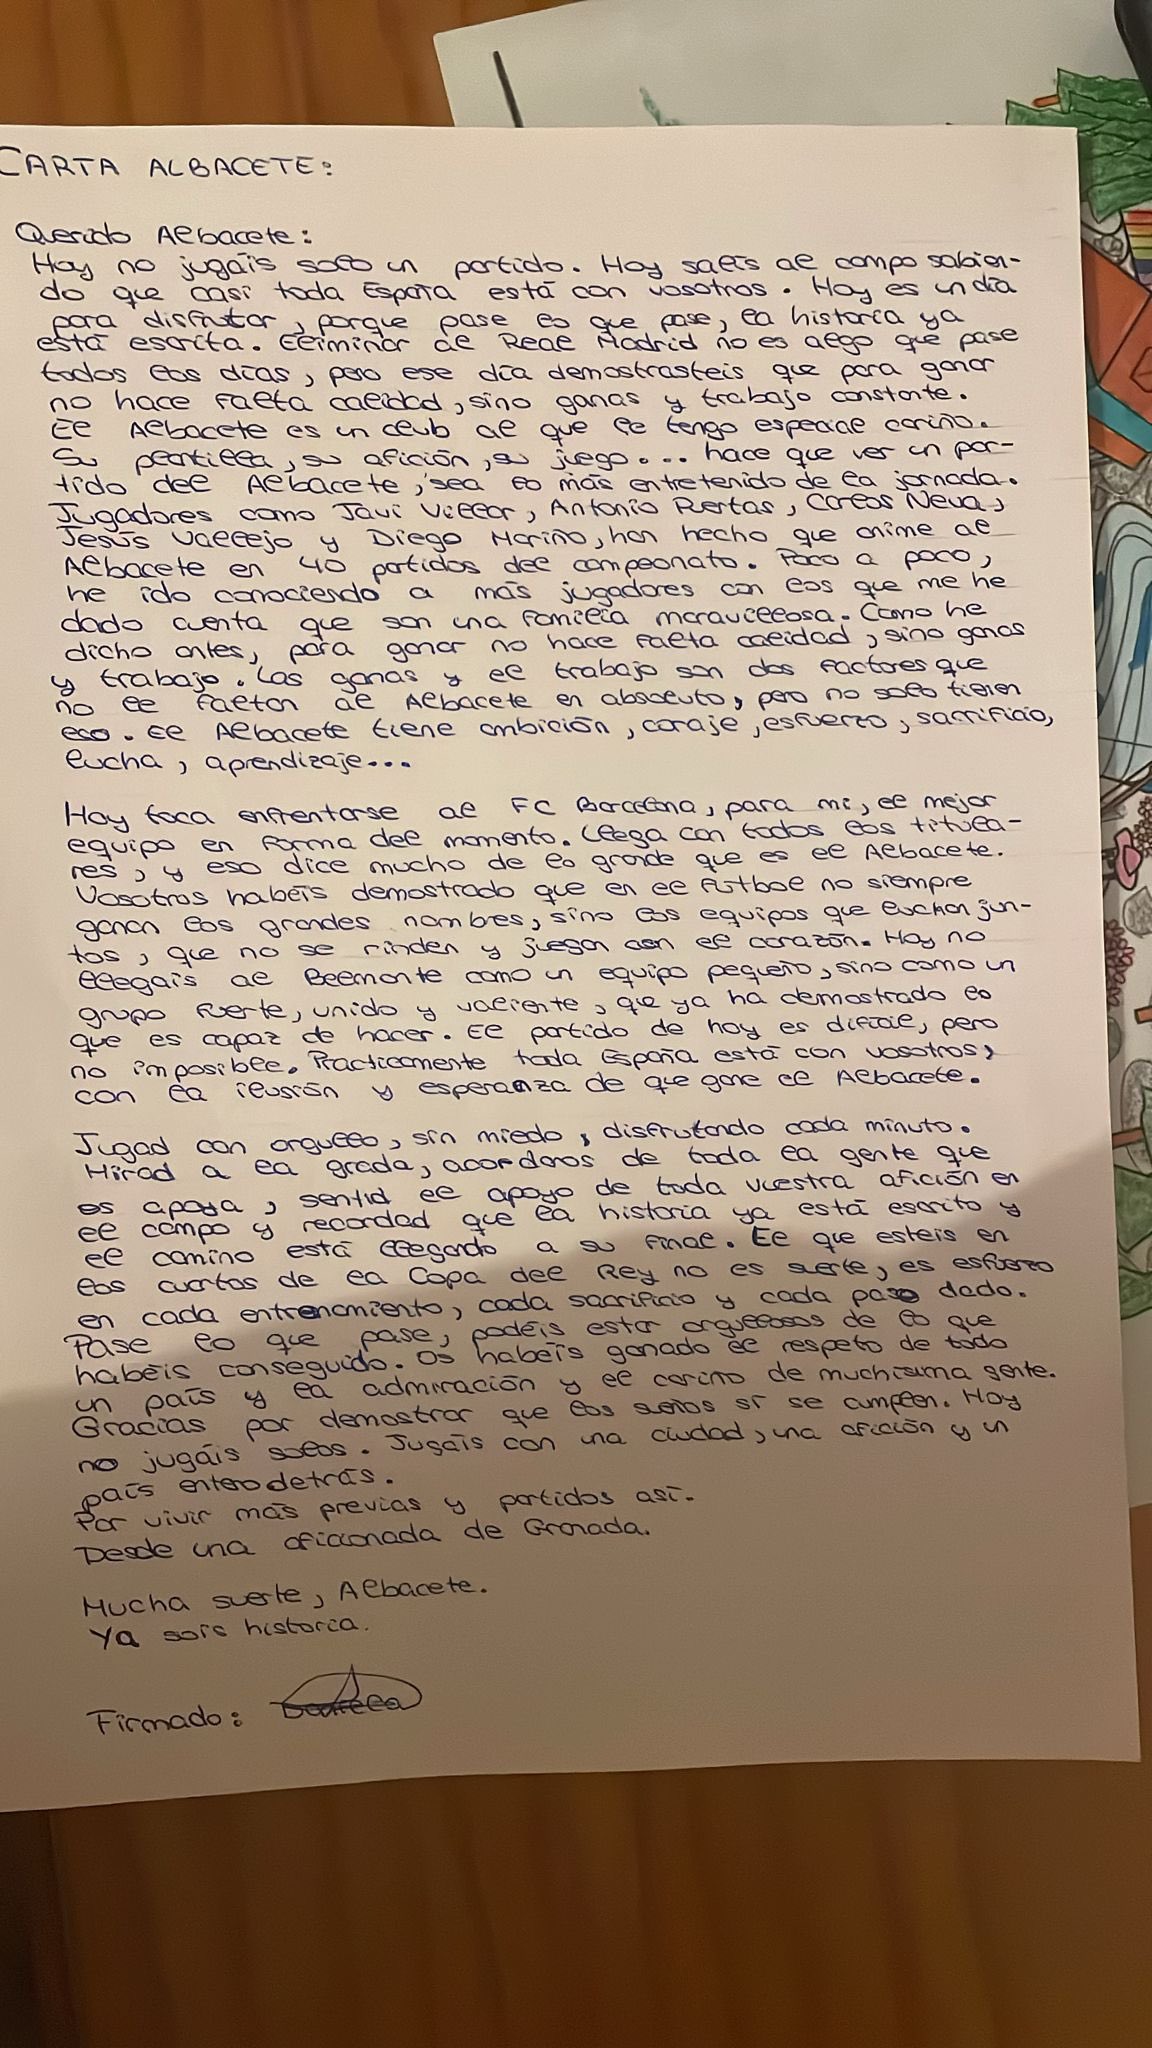 CARTA ALBACETE:
Querido Albacete:
Hoy no jugáis solo un partido. Hoy salís al campo sabien-
do que casi toda España está con vosotros. Hoy es un día
para disfrutar, porque pase lo que pase, la historia ya
está escrita. Eliminar al Real Madrid no es algo que pase
todos los días, pero ese día demostrasteis que para ganar
no hace falta calidad, sino ganas y trabajo constante.
El Albacete es un club al que le tengo especial cariño.
Su plantilla, su afición, su juego.... hace que ver un par-
tido del Albacete, sea lo más entretenido de la jornada.
Jugadores como Javi Villar, Antonio Puertas, Carlos Neva,
Jesús Vallejo y Diego Mariño, han hecho que anime al
Albacete en 40 partidos del campeonato. Poco a poco,
he ido conociendo a más jugadores con los que me he
dado cuenta que son una familia maravillosa. Como he
dicho antes, para ganar no hace falta calidad, sino ganas
y trabajo. Las ganas y el trabajo son dos factores que
no le faltan al Albacete en absoluto, pero no solo tienen
eso. El Albacete tiene ambición, coraje, esfuerzo, sacrificio,
lucha, aprendizaje...
Hoy toca enfrentarse al FC Barcelona, para mi, el mejor
equipo en forma del momento. Llega con todos los titula-
res, y eso dice mucho de lo grande que es el Albacete.
Vosotros habéis demostrado que en el fútbol no siempre
ganan los grandes nombres, sino los equipos que luchan jun-
tos, que no se rinden y juegan con el corazón. Hoy no
llegais al Belmonte como un equipo pequeño, sino como un
grupo fuerte, unido y valiente, que ya ha demostrado lo
que es capaz de hacer. El partido de hoy es difícil, pero
no imposible. Practicamente toda España está con vosotros,
con la ilusión y esperanza de que gane el Albacete.
Jugad con orgullo, sin miedo, disfrutando cada minuto.
Mirad a la grada, acordaros de toda la gente que
os apoya, sentid el apoyo de toda vuestra afición en
el campo y recordad que la historia ya está escrito y
el camino está llegando a su final. El que esteis en
los cuartos de la Copa del Rey no es suerte, es esfuerzo
en cada entrenamiento, cada sacrificio y cada paso dado.
Pase lo que pase, podéis estar orgullosos de lo que
habéis conseguido. Os habéis ganado el respeto de todo
un país y la admiración y el cariño de muchisima gente.
Gracias por demostrar que los sueños sí se cumplen. Hoy
no jugáis solos. Jugáis con una ciudad, una afición y un
país entero detrás.
Por vivir más previas y partidos así.
Desde una aficionada de Granada.
Mucha suerte, Albacete.
Ya sois historia.
Firmado: